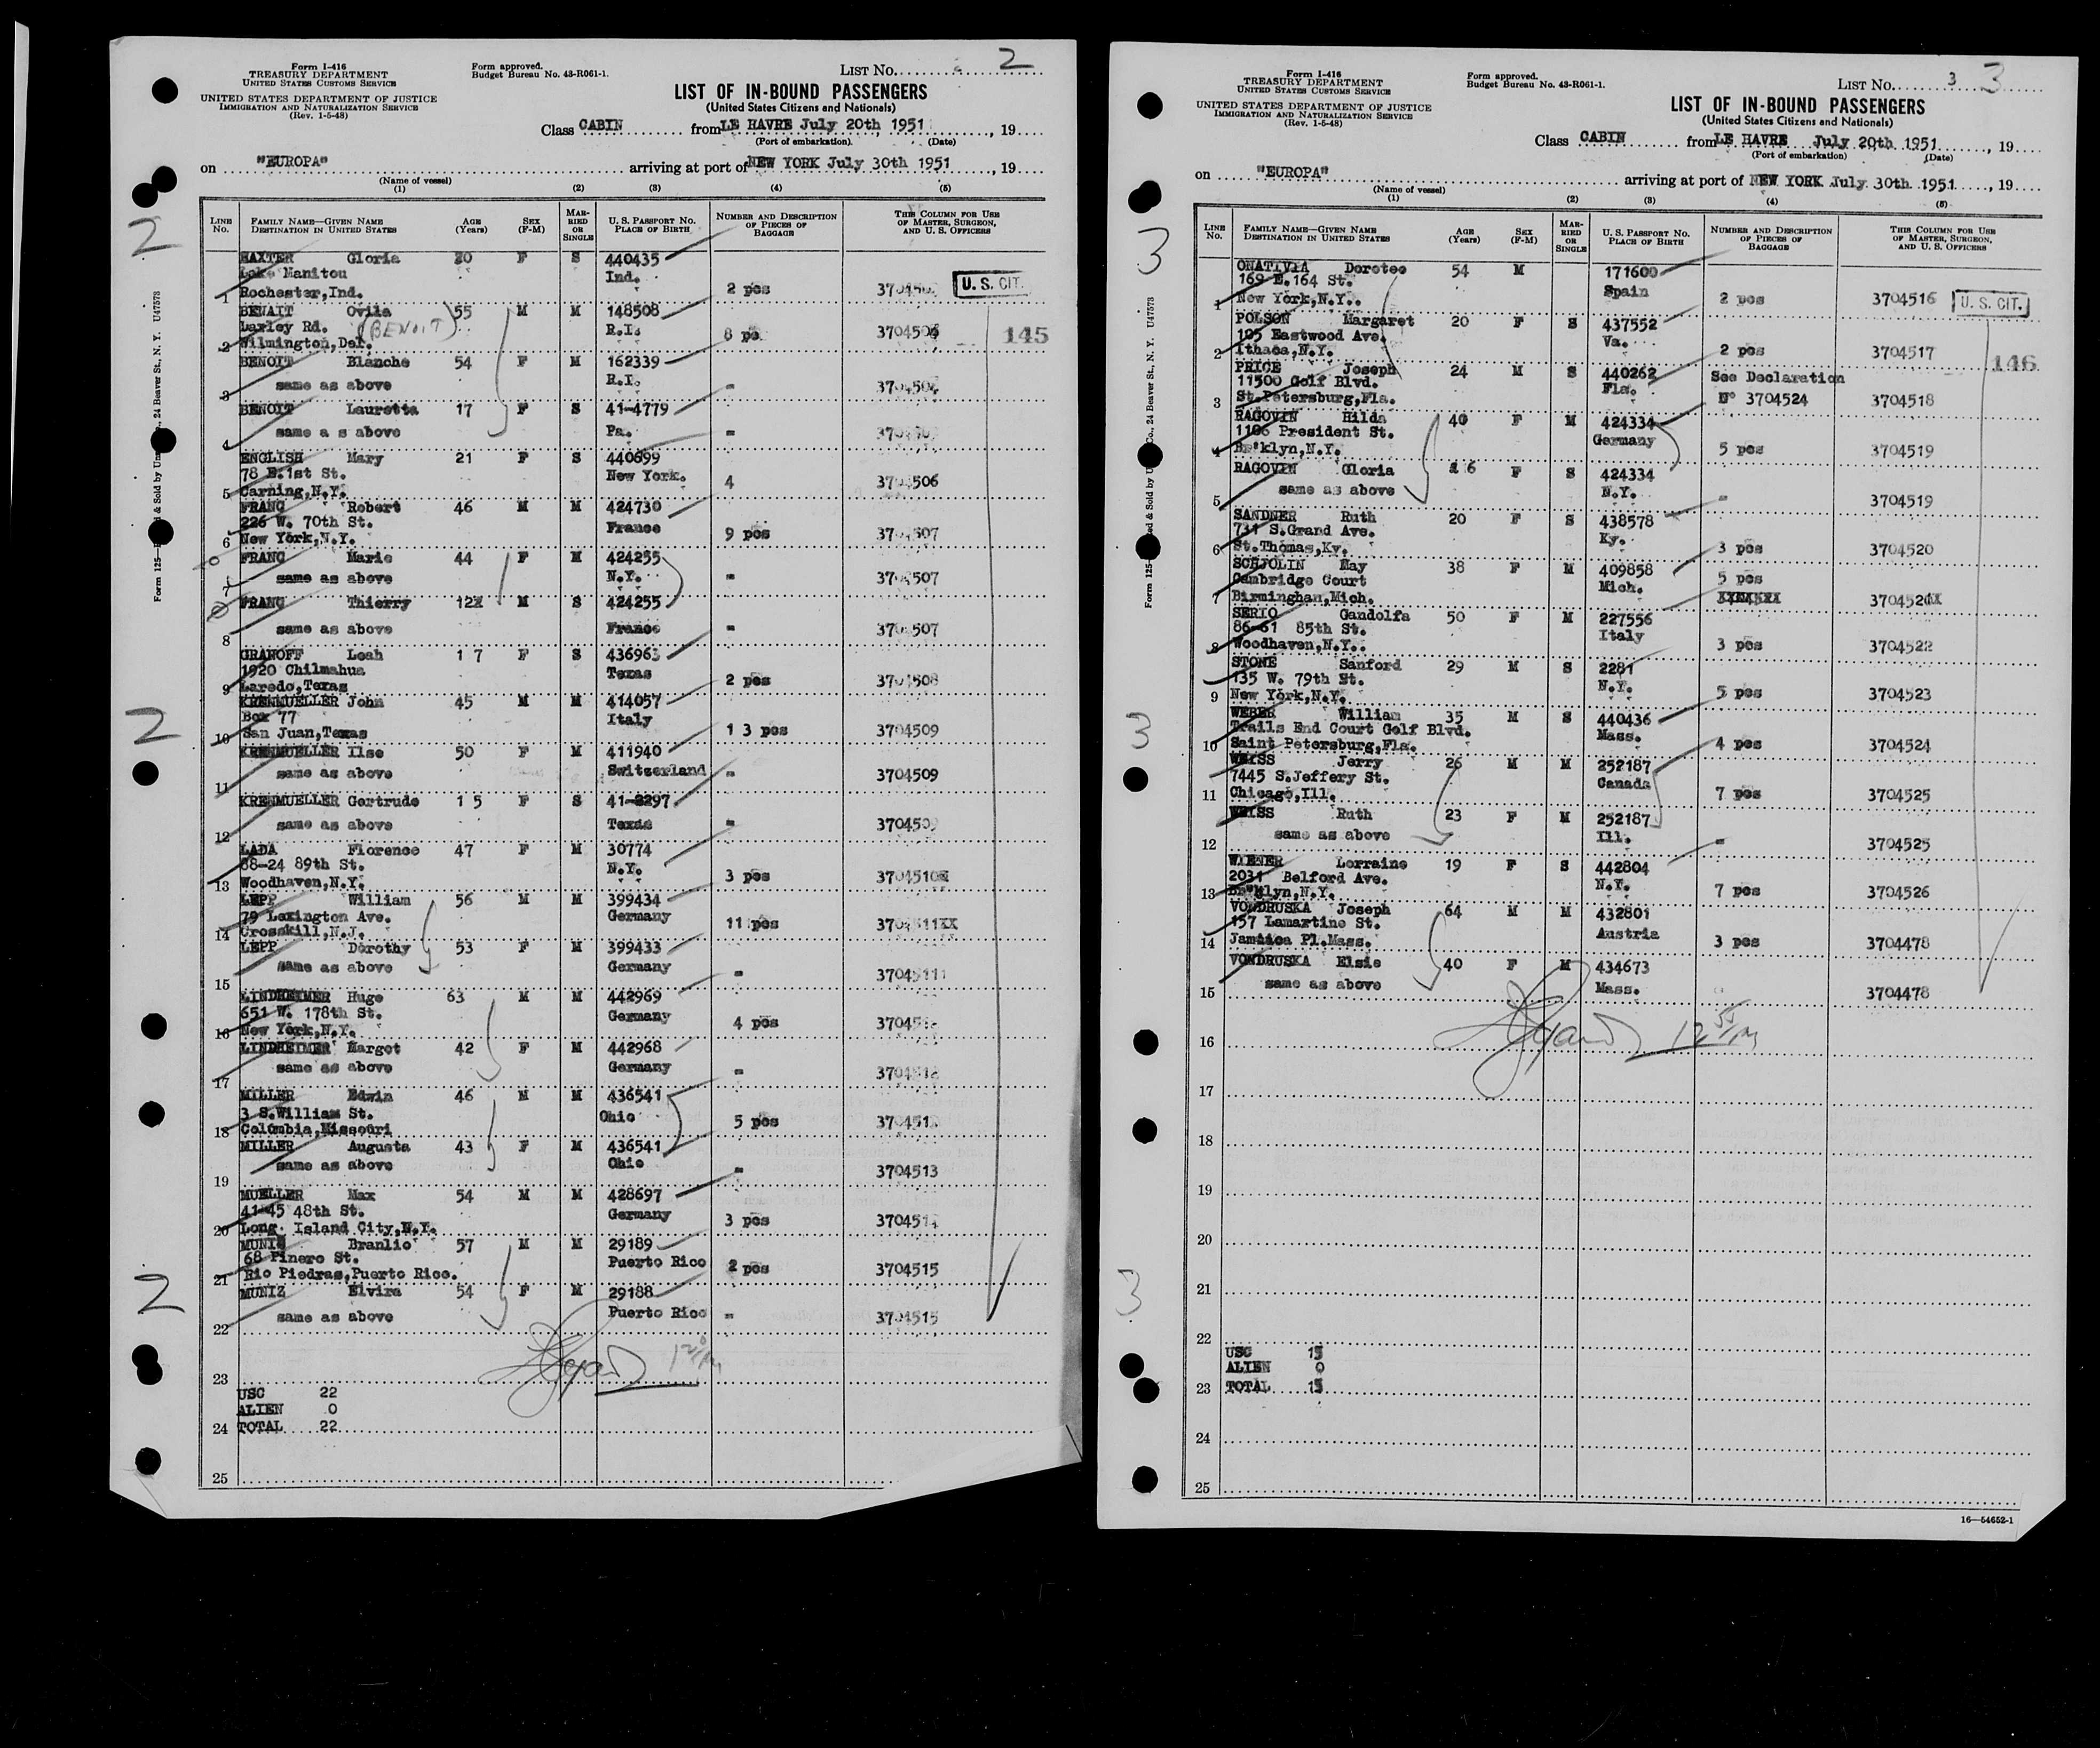 Form I-416
TREASURY DEPARTMENT
UNITED STATES CUSTOMS SERVICE
UNITED STATES DEPARTMENT OF JUSTICE
IMMIGRATION AND NATURALIZATION SERVICE
(Rev. 1-5-48)
Form approved.
Budget Bureau No. 43-R061-1.
LIST NO. 2
LIST OF IN-BOUND PASSENGERS
(United States Citizens and Nationals)
Class CABIN from LE HAVRE July 20th 1951, 19
(Port of embarkation) (Date)
on "EUROPA" arriving at port of NEW YORK July 30th 1951, 19
(Name of vessel)
(1) (2) (3) (4) (5)
LINE No. FAMILY NAME—GIVEN NAME DESTINATION IN UNITED STATES AGE (Years) SEX (F-M) MARRIED OR SINGLE U. S. PASSPORT NO. PLACE OF BIRTH NUMBER AND DESCRIPTION OF PIECES OF BAGGAGE THIS COLUMN FOR USE OF MASTER, SURGEON, AND U. S. OFFICERS
BAXTER Gloria 20 F S 440435
Lake Manitou Ind.
1 Rochester,Ind. 2 pcs U. S. CIT.
BENAIT Ovila 55 M M 148508
Larley Rd. (BENOIT) R.I.
2 Wilmington,Del. 8 pc 145
BENOIT Blanche 54 F M 162339
same as above R.I. "
3
BENOIT Lauretta 17 F S 41-4779
same a s above Pa. "
4
ENGLISH Mary 21 F S 440699
78 E.1st St. New York.
5 Carning,N.Y. 4 3704506
FRANC Robert 46 M M 424730
226 W. 70th St. France
6 New York,N.Y. 9 pcs 3704507
FRANC Marie 44 F M 424255
7 same as above N.Y. " 3704507
FRANC Thierry 12X M S 424255
same as above France " 3704507
8
GRANOFF Leah 1 7 F S 436963
1920 Chilmahua Texas
9 Laredo,Texas 2 pcs 3704508
KRENMUELLER John 45 M M 414057
Box 77 Italy
10 San Juan,Texas 1 3 pcs 3704509
KRENMUELLER Ilse 50 F M 411940
same as above Switzerland " 3704509
11
KRENMUELLER Gertrude 1 5 F S 41-2297
same as above Texas "
12
LADA Florence 47 F M 30774
88-24 89th St. N.Y.
13 Woodhaven,N.Y. 3 pcs 3704510X
LEPP William 56 M M 399434
79 Lexington Ave. Germany
14 Crosskill,N.J. 11 pcs 3704511XX
LEPP Dorothy 53 F M 399433
same as above Germany "
15
LINDHEIMER Hugo 63 M M 442969
651 W. 178th St. Germany
16 New York,N.Y. 4 pcs
LINDHEIMER Margot 42 F M 442968
same as above Germany "
17
MILLER Edwin 46 M M 436541
3 S.William St. Ohio
18 Columbia,Missouri 5 pcs
MILLER Augusta 43 F M 436541
same as above Ohio " 3704513
19
MUELLER Max 54 M M 428697
41-45 48th St. Germany
20 Long Island City,N.Y. 3 pcs
MUNIZ Branlio 57 M M 29189
68 Pinero St. Puerto Rico
21 Rio Piedras,Puerto Rico. 2 pcs 3704515
MUNIZ Elvira 54 F M 29188
same as above Puerto Rico " 3704515
22
23
USC 22
ALIEN 0
24 TOTAL 22
25
2
2
2
Form I-416
TREASURY DEPARTMENT
UNITED STATES CUSTOMS SERVICE
UNITED STATES DEPARTMENT OF JUSTICE
IMMIGRATION AND NATURALIZATION SERVICE
(Rev. 1-5-48)
Form approved.
Budget Bureau No. 43-R061-1.
LIST NO. 3 3
LIST OF IN-BOUND PASSENGERS
(United States Citizens and Nationals)
Class CABIN from LE HAVRE July 20th 1951, 19
(Port of embarkation) (Date)
on "EUROPA" arriving at port of NEW YORK July 30th 1951, 19
(Name of vessel)
(1) (2) (3) (4) (5)
LINE No. FAMILY NAME—GIVEN NAME DESTINATION IN UNITED STATES AGE (Years) SEX (F-M) MARRIED OR SINGLE U. S. PASSPORT NO. PLACE OF BIRTH NUMBER AND DESCRIPTION OF PIECES OF BAGGAGE THIS COLUMN FOR USE OF MASTER, SURGEON, AND U. S. OFFICERS
ONATIVIA Doroteo 54 M 171600
169 E.164 St. Spain
1 New York,N.Y.. 2 pcs 3704516 U. S. CIT.
POLSON Margaret 20 F S 437552
105 Eastwood Ave. Va.
2 Ithaca,N.Y. 2 pcs 3704517 146
PRICE Joseph 24 M S 440262 See Declaration
11500 Golf Blvd. Fla.
3 St.Petersburg,Fla. N° 3704524 3704518
RAGOVIN Hilda 40 F M 424334
1186 President St. Germany
4 Br'klyn,N.Y. 5 pcs 3704519
RAGOVIN Gloria 16 F S 424334
same as above N.Y. " 3704519
5
SANDNER Ruth 20 F S 438578
731 S.Grand Ave. Ky.
6 St.Thomas,Ky. 3 pcs 3704520
SCHJOLIN May 38 F M 409858
Cambridge Court Mich. 5 pcs
7 Birminghan,Mich. 3704521X
SERIO Gandolfa 50 F M 227556
86-61 85th St. Italy
8 Woodhaven,N.Y.. 3 pcs 3704522
STONE Sanford 29 M S 2281
135 W. 79th St. N.Y.
9 New York,N.Y. 5 pcs 3704523
WEBER William 35 M S 440436
Trails End Court Golf Blvd. Mass.
10 Saint Petersburg,Fla. 4 pcs 3704524
WEISS Jerry 26 M M 252187
7445 S.Jeffery St. Canada
11 Chicago,Ill. 7 pcs 3704525
WEISS Ruth 23 F M 252187
same as above Ill. " 3704525
12
WIENER Lorraine 19 F S 442804
2031 Belford Ave. N.Y.
13 Br'klyn,N.Y. 7 pcs 3704526
VONDRUSKA Joseph 64 M M 432801
157 Lamartine St. Austria
14 Jamaica Pl.Mass. 3 pcs 3704478
VONDRUSKA Elsie 40 F M 434673
same as above Mass. 3704478
15
16
17
18
19
20
21
22
USC 15
ALIEN 0
23 TOTAL 15
24
25
16—54652-1
3
3
3